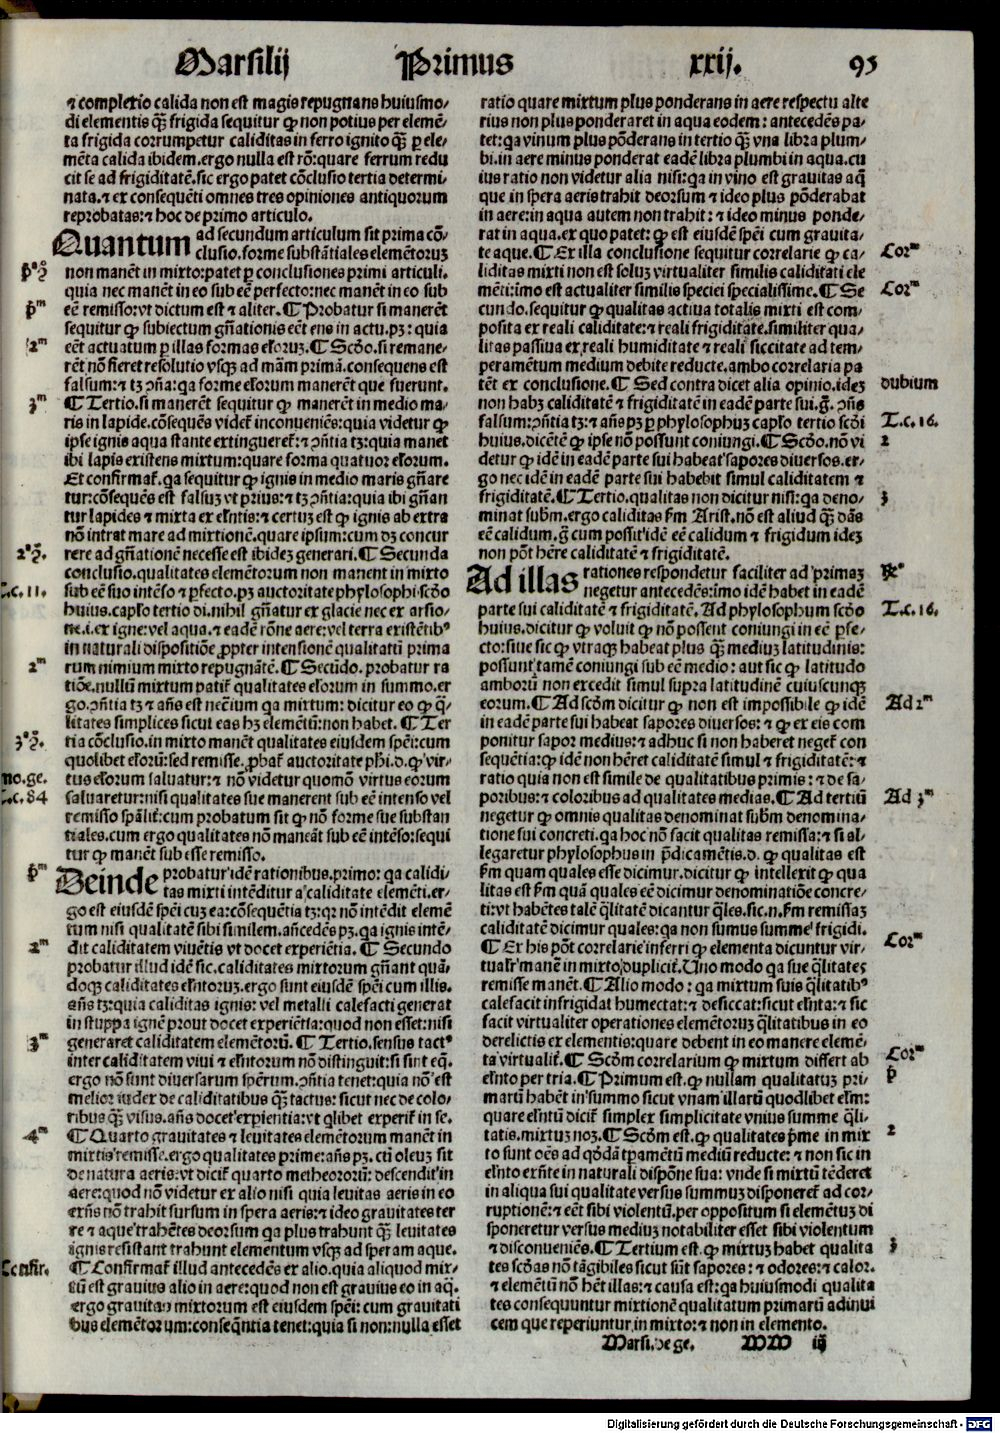 Marsilij Primus xxij. 95
⁊ complexio calida non est magis repugnans huiusmo/
di elementis q̃ȝ frigida sequitur ꝙ non potius per elemē/
ta frigida corrumpetur caliditas in ferro ignito q̃ȝ ꝑ ele/
mēta calida ibidem.ergo nulla est rō:quare ferrum redu
cit se ad frigiditatē.sic ergo patet cōclusio tertia determi/
nata.⁊ ex consequēti omnes tres opiniones antiquorum
reprobatas:⁊ hoc de primo articulo.
Quantum ad secundum articulum sit prima cō/
clusio.forme substātiales elemētoruȝ
non manēt in mixto:patet ꝑ conclusiones primi articuli.
quia nec manēt in eo sub eē perfecto:nec manēt in eo sub
eē remisso:vt dictum est ⁊ aliter.¶ Probatur si manerēt
sequitur ꝙ subiectum gn̄ationis eēt ens in actu.pȝ: quia
eēt actuatum ꝑ illas formas eſoruȝ.¶ Scd̄o.si remane/
rēt nō fieret resolutio vsqȝ ad mām primā.consequens est
falsum:⁊ tȝ ↄn̄a:qa forme eſorum manerēt que fuerunt.
¶ Tertio.si manerēt sequitur ꝙ manerēt in medio ma/
ris in lapide.cōsequēs videt̄ inconueniēs:quia videtur ꝙ
ipse ignis aqua stante extingueret̄:⁊ ↄn̄tia tȝ:quia manet
ibi lapis existens mixtum:quare forma quatuor eſorum.
Et confirmat̄.qa sequitur ꝙ ignis in medio maris gn̄are
tur:cōsequēs est falsuȝ vt prius:⁊ tȝ ↄn̄tia:quia ibi gn̄an
tur lapides ⁊ mixta ex eſn̄tis:⁊ certuȝ est ꝙ ignis ab extra
nō intrat mare ad mixtionē.quare ipsum:cum dȝ concur
rere ad gn̄ationē necesse est ibideȝ generari.¶ Secunda
conclusio.qualitates elemētorum non manent in mixto
sub eē suo intēso ⁊ ꝑfecto.pȝ auctoritate phylosophi scd̄o
huius.capſo tertio di.nihil gn̄atur ex glacie nec ex arsio/
ne.i.ex igne:vel aqua.⁊ eadē rōne aere:vel terra existētibꝰ
in naturali dispositiōe ꝓpter intensionē qualitatū prima
rum nimium mixto repugnātē.¶ Secūdo. probatur ra
tiōe.nullū mixtum patit̄ qualitates eſorum in summo.er
go.ↄn̄tia tȝ ⁊ an̄s est nec̄ium qa mixtum: dicitur eo ꝙ q̄/
litates simplices sicut eas hȝ elemētū:non habet. ¶ Ter
tia cōclusio.in mixto manēt qualitates eiusdem spēi:cum
quolibet eſorū:sed remisse.ꝓbat̄ auctoritate phi.d.ꝙ vir/
tus eſorum saluatur:⁊ nō videtur quomō virtus eorum
saluaretur:nisi qualitates sue manerent sub eē intenso vel
remisso spāliť:cum probatum sit ꝙ nō forme sue substan
tiales.cum ergo qualitates nō maneāt sub eē intēso:sequi
tur ꝙ manēt sub esse remisso.
Deinde probatur idē rationibus.primo: qa calidi/
tas mixti intēditur a caliditate elemēti.er/
go est eiusdē spēi cuȝ ea:cōsequētia tȝ:qr nō intēdit elemē
tum nisi qualitatē sibi similem.an̄cedēs pȝ.qa ignis intē/
dit caliditatem viuētis vt docet experiētia. ¶ Secundo
probatur illud idē sic.caliditates mixtorum gn̄ant quā/
doqȝ caliditates eſn̄toruȝ.ergo sunt eiusdē spēi cum illis.
an̄s tȝ:quia caliditas ignis: vel metalli calefacti generat
in stuppa ignē prout docet experiētia:quod non esset:nisi
generaret caliditatem elemētorū. ¶ Tertio.sensus tactꝰ
inter caliditatem viui ⁊ eſn̄torum nō distinguit:si sint eq̄.
ergo nō sunt diuersarum spērum.ↄn̄tia tenet:quia nō est
melior iudex de caliditatibus q̃ȝ tactus: sicut nec de colo/
ribus q̃ȝ visus.an̄s docet exꝑientia:vt qlibet experit̄ in se.
¶ Quarto grauitates ⁊ leuitates elemētorum manēt in
mixtis remisse.ergo qualitates prime:an̄s pȝ. cū oleuȝ sit
de natura aeris:vt dicit̄ quarto metheororū: descendit in
aere:quod nō videtur ex alio nisi quia leuitas aeris in eo
exn̄s nō trahit sursum in spera aeris:⁊ ideo grauitates ter
re ⁊ aque trahētes deorsum qa plus trahunt q̃ȝ leuitates
ignis resistant trahunt elementum vsqȝ ad speram aque.
¶ Confirmat̄ illud antecedēs ex alio.quia aliquod mix/
tū est grauius alio in aere:quod non est grauius eo in aq̄.
ergo grauitas mixtorum est eiusdem spēi: cum grauitati
bus elemētorum:conseq̄ntia tenet:quia si non:nulla esset
p̄ᵃ ↄ̄.
p̄ᵐ
2ᵐ
3ᵐ
2ᵃ ↄ̄.
T.c.11.
2ᵐ
3ᵃ ↄ̄.
no.ge.
T.c.84
p̄ᵐ
2ᵐ
3ᵐ
4ᵐ
Cōfir.
ratio quare mixtum plus ponderans in aere respectu alte
rius non plus ponderaret in aqua eodem: antecedēs pa/
tet:qa vinum plus pōderans in tertio q̃ȝ vna libra plum/
bi.in aere minus ponderat eadē libra plumbi in aqua.cu
ius ratio non videtur alia nisi:qa in vino est grauitas aq̄
que in spera aeris trahit deorsum ⁊ ideo plus pōderabat
in aere:in aqua autem non trahit: ⁊ ideo minus ponde/
rat in aqua.ex quo patet: ꝙ est eiusdē spēi cum grauita/
te aque.¶ Ex illa conclusione sequitur correlarie ꝙ ca/
liditas mixti non est soluȝ virtualiter similis caliditati ele
mēti:imo est actualiter similis speciei specialissime.¶ Se
cundo.sequitur ꝙ qualitas actiua totalis mixti est com/
posita ex reali caliditate:⁊ reali frigiditate.similiter qua/
litas passiua ex reali humiditate ⁊ reali siccitate ad tem/
peramētum medium debite reducte.ambo correlaria pa
tēt ex conclusione.¶ Sed contra dicet alia opinio.ideȝ
non habȝ caliditatē ⁊ frigiditatē in eadē parte sui.g̊. ↄn̄s
falsum:ↄn̄tia tȝ:⁊ an̄s pȝ ꝑ phylosophuȝ capſo tertio scd̄i
huius.dicētē ꝙ ipse nō possunt coniungi.¶ Scd̄o.nō vi
detur ꝙ idē in eadē parte sui habeat sapores diuersos.er/
go nec idē in eadē parte sui habebit simul caliditatem ⁊
frigiditatē.¶ Tertio.qualitas non dicitur nisi:qa deno/
minat subm̄.ergo caliditas fm̄ Arist.nō est aliud q̃ȝ dās
eē calidum.g̊ cum possit idē eē calidum ⁊ frigidum ideȝ
non pōt h̄ere caliditatē ⁊ frigiditatē.
Ad illas rationes respondetur faciliter ad primaȝ
negetur antecedēs:imo idē habet in eadē
parte sui caliditatē ⁊ frigiditatē. Ad phylosophum scd̄o
huius.dicitur ꝙ voluit ꝙ nō possent coniungi in eē ꝑfe/
cto:siue sic ꝙ vtraqȝ habeat plus q̃ȝ mediuȝ latitudinis:
possunt tamē coniungi sub eē medio: aut sic ꝙ latitudo
amborū non excedit simul supra latitudinē cuiuscunqȝ
eorum.¶ Ad scd̄m dicitur ꝙ non est impossibile ꝙ idē
in eadē parte sui habeat sapores diuersos: ⁊ ꝙ ex eis com
ponitur sapor medius:⁊ adhuc si non haberet neget̄ con
sequētia:ꝙ idē non h̄eret caliditatē simul ⁊ frigiditatē:⁊
ratio quia non est simile de qualitatibus primis: ⁊ de sa/
poribus:⁊ coloribus ad qualitates medias.¶ Ad tertiū
negetur ꝙ omnis qualitas denominat subm̄ denomina/
tione sui concreti.qa hoc nō facit qualitas remissa:⁊ si al/
legaretur phylosophus in p̄dicamētis.d. ꝙ qualitas est
fm̄ quam quales esse dicimur.dicitur ꝙ intellexit ꝙ qua
litas est fm̄ quā quales eē dicimur denominatiōe concre/
ti:vt habētes talē q̄litatē dicantur q̄les.sic.n.fm̄ remissaȝ
caliditatē dicimur quales:qa non sumus summe frigidi.
¶ Ex his pōt correlarie inferri ꝙ elementa dicuntur vir/
tualr̄ manē in mixto dupliciť.Uno modo qa sue q̄litates
remisse manēt.¶ Alio modo: qa mixtum suis q̄litatibꝰ
calefacit infrigidat humectat:⁊ desiccat:sicut eſn̄ta:⁊ sic
facit virtualiter operationes elemētoruȝ q̄litatibus in eo
derelictis ex elementis:quare debent in eo manere elemē/
ta virtualiť.¶ Scd̄m correlarium ꝙ mixtum differt ab
eſn̄to per tria.¶ Primum est.ꝙ nullam qualitatuȝ pri/
marū habēt in summo sicut vnam illarū quodlibet eſm̄:
quare eſn̄tū dicit̄ simplex simplicitate vnius summe q̄li/
tatis.mixtuȝ noȝ.¶ Scd̄m est.ꝙ qualitates p̄me in mix
to sunt oēs ad qd̄dā tꝑamētū mediū reducte: ⁊ non sic in
eſn̄to exn̄te in naturali dispōne sua: vnde si mixtū tēderet
in aliqua sui qualitate versus summuȝ disponeret̄ ad cor/
ruptionē:⁊ eēt sibi violentū.per oppositum si elemētuȝ di
sponeretur versus mediuȝ notabiliter esset sibi violentum
⁊ disconueniēs.¶ Tertium est.ꝙ mixtuȝ habet qualita
tes scd̄as nō tāgibiles sicut sūt sapores: ⁊ odores:⁊ calor.
⁊ elemētū nō h̄et illas:⁊ causa est:qa huiusmodi qualita
tes consequuntur mixtionē qualitatum primarū adinui
cem que reperiuntur in mixto:⁊ non in elemento.
Corᵐ
Corᵐ
dubium
T.c.16.
2
3
T.c.16.
Ad 2ᵐ
Ad 3ᵐ
Corᵐ
Corᵐ
p̄
2
3
Marsi.de ge. MM iij
Digitalisierung gefördert durch die Deutsche Forschungsgemeinschaft - DFG